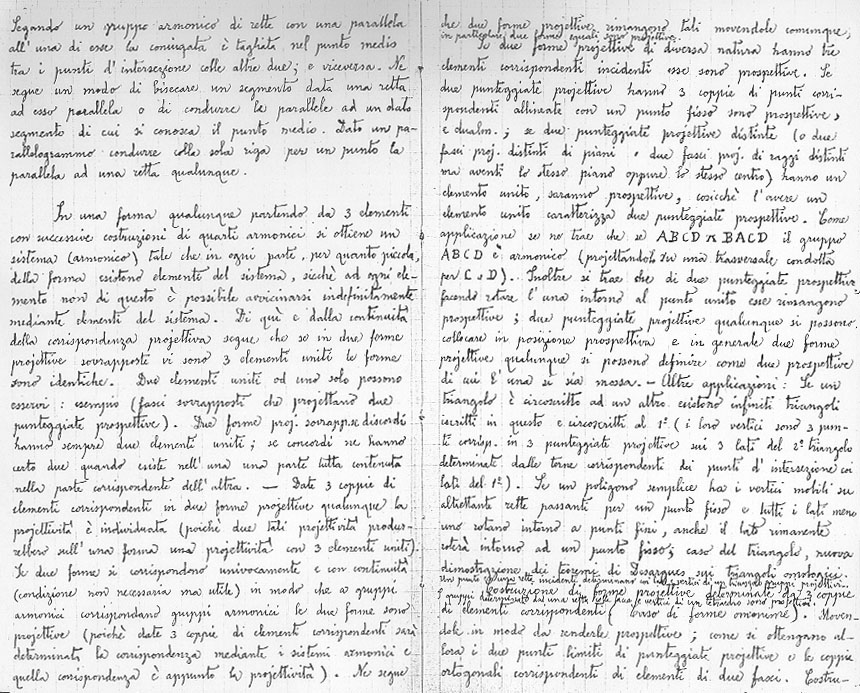 Segando un gruppo armonico di rette con una parallela
all'una di esse la coniugata è tagliata nel punto medio
tra i punti d'intersezione colle altre due; e viceversa. Ne
segue un modo di bisecare un segmento data una retta
ad esso parallela o di condurre la parallele ad un dato
segmento di cui si conosca il punto medio. Dato un pa-
rallelogrammo condurre colla sola riga per un punto la
parallela ad una retta qualunque.
In una forma qualunque partendo da 3 elementi
con successive costruzioni di quarti armonici si ottiene un
sistema (armonico) tale che in ogni parte, per quanto piccola,
della forma esistono elementi del sistema, sicchè ad ogni ele-
mento non di questo è possibile avvicinarsi indefinitamente
mediante elementi del sistema. Di quì e dalla continuità
della corrispondenza projettiva segue che se in due forme
projettive sovrapposte vi sono 3 elementi uniti le forme
sono identiche. Due elementi uniti od uno solo possono
esservi: esempio (fasci sovrapposti che projettano due
punteggiate prospettive). Due forme proj. sovrapp.se discordi
hanno sempre due elementi uniti; se concordi ne hanno
certo due quando esiste nell'una una parte tutta contenuta
nella parte corrispondente dell'altra. — Date 3 coppie di
elementi corrispondenti in due forme projettive qualunque la
projettività è individuata (poichè due tali projettività produr-
rebbero sull'una forma una projettività con 3 elementi uniti).
Se due forme si corrispondono univocamente e con continuità
(condizione non necessaria ma utile) in modo che a gruppi
armonici corrispondano gruppi armonici le due forme sono
projettive (poichè date 3 coppie di elementi corrispondenti sarà
determinata la corrispondenza mediante i sistemi armonici e
quella corrispondenza è appunto la projettività). Ne segue
che due forme projettive rimangono tali movendole comunque;
in particolare due forme eguali sono projettive.
Se due forme projettive di diversa natura hanno tre
elementi corrispondenti incidenti esse sono prospettive. Se
due punteggiate projettive hanno 3 coppie di punti corri-
spondenti allineate con un punto fisso sono prospettive,
e dualm.; se due punteggiate projettive distinte (o due
fasci proj. distinti di piani o due fasci proj. di raggi distinti
ma aventi lo stesso piano oppure lo stesso centro) hanno un
elemento unito, saranno prospettive, cosicchè l'avere un
elemento unito caratterizza due punteggiate prospettive. Come
applicazione se ne trae che se ABCD ⊼ BACD il gruppo
ABCD è armonico (projettandolo su una trasversale condotta
per C o D). Inoltre si trae che di due punteggiate prospettive
facendo rotare l'una intorno al punto unito esse rimangono
prospettive; due punteggiate projettive qualunque si possono
collocare in posizione prospettiva e in generale due forme
projettive qualunque si possono definire come due prospettive
di cui l'una si sia mossa. — Altre applicazioni: Se un
triangolo è circoscritto ad un altro esistono infiniti triangoli
iscritti in questo e circoscritti al 1º (i loro vertici sono 3 pun-
ti corrisp. in 3 punteggiate projettive sui 3 lati del 2º triangolo
determinate dalle terne corrispondenti dei punti d'intersezione coi
lati del 1º). Se un poligono semplice ha i vertici mobili su
altrettante rette passanti per un punto fisso e tutti i lati meno
uno rotano intorno a punti fissi, anche il lato rimanente
roterà intorno ad un punto fisso; caso del triangolo, nuova
dimostrazione dei teoremi di Desargues sui triangoli omologici.
Un punto ed una retta incidenti determinano sui lati e vertici di un triangolo gruppi projettivi.
I gruppi determinati da una retta sulle facce e vertici di un tetraedro sono projettivi.
Costruzione di forme projettive determinate da 3 coppie
di elementi corrispondenti (caso di forme omonime). Moven-
dole in modo da renderle prospettive; come si ottengano al-
lora i due punti limiti di punteggiate projettive e le coppie
ortogonali corrispondenti di elementi di due fasci. Costru-